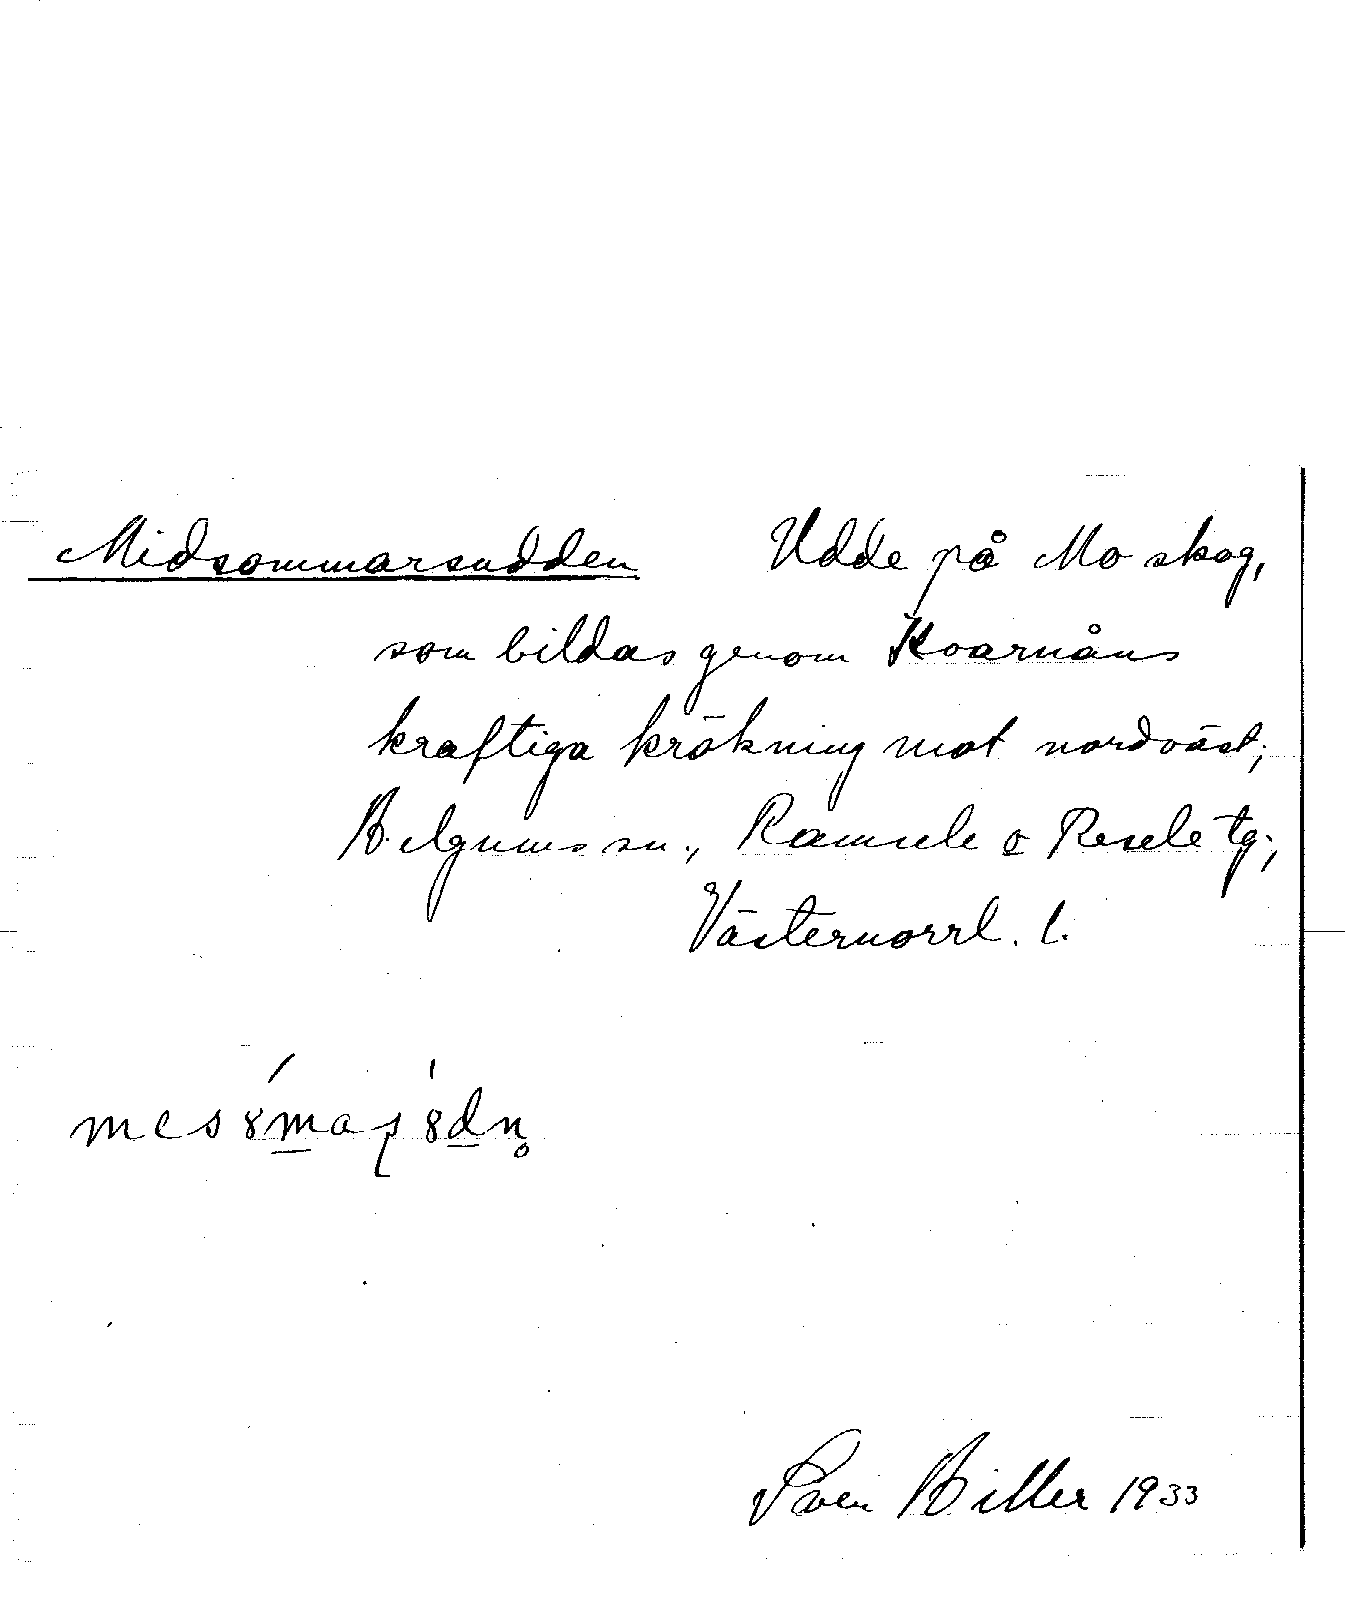 Midsommarsudden Udde på Mo skog,
som bildas genom Kvarnåns
kraftiga krökning mot nordväst;
Helgums sn., Ramsele o Resele tg.,
Västernorrl. l.
Sven Hiller 1933